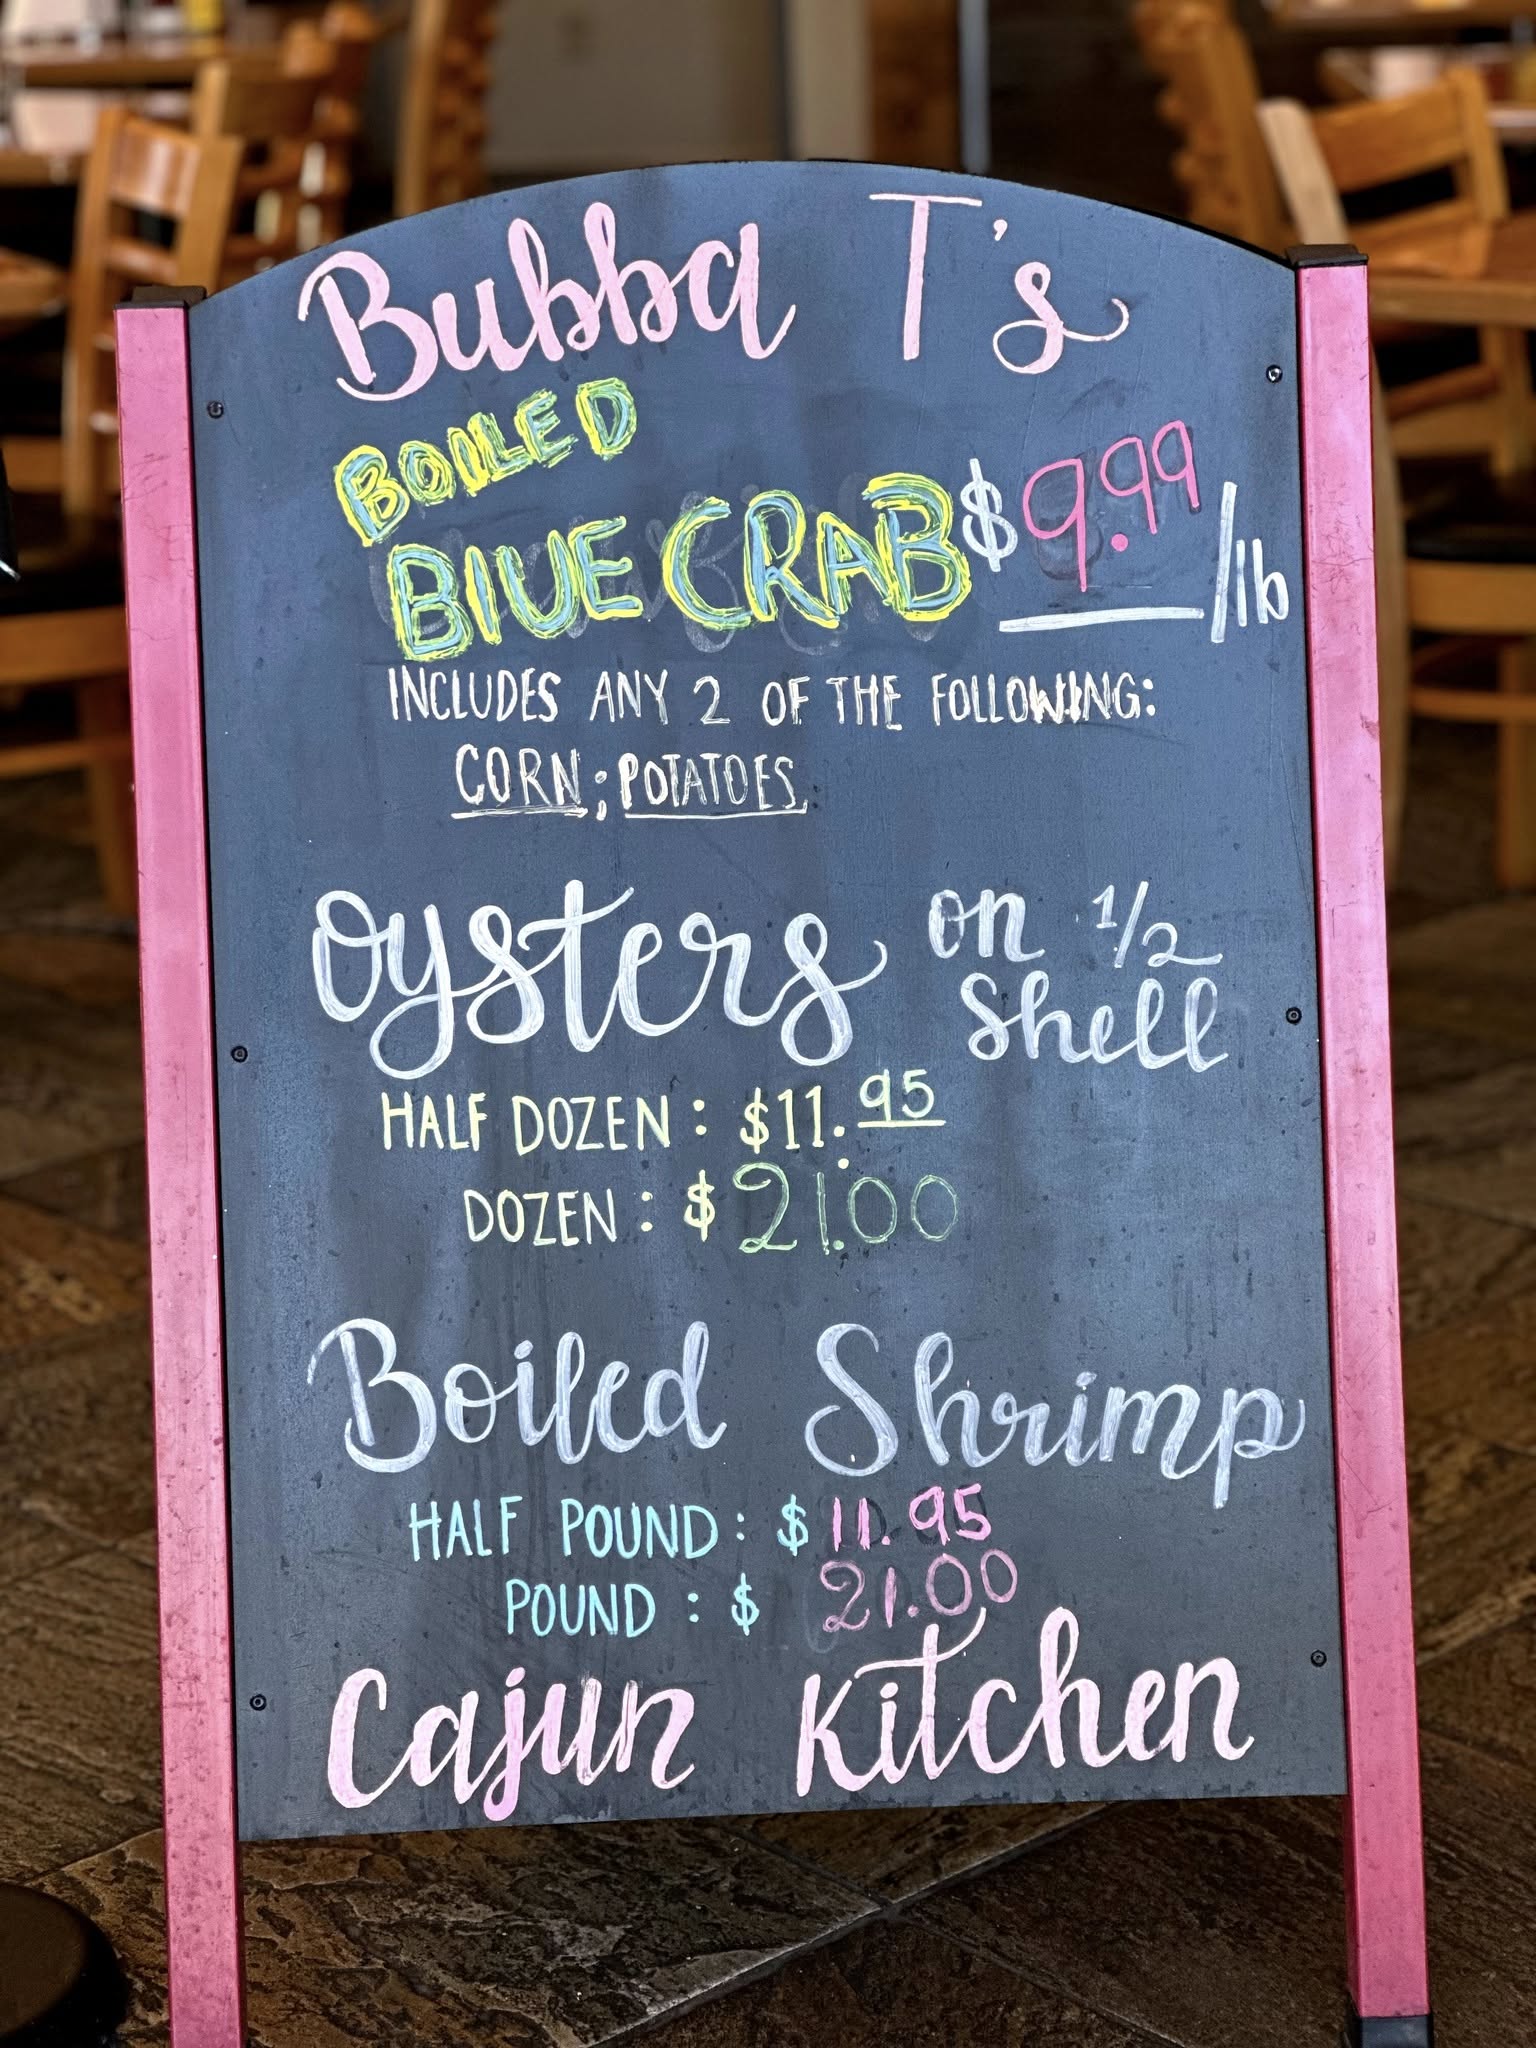 Bubba T's
BOILED
BLUE CRAB $9.99/lb
INCLUDES ANY 2 OF THE FOLLOWING:
CORN; POTATOES
Oysters on 1/2
Shell
HALF DOZEN: $11.95
DOZEN: $21.00
Boiled Shrimp
HALF POUND: $11.95
POUND: $21.00
Cajun Kitchen